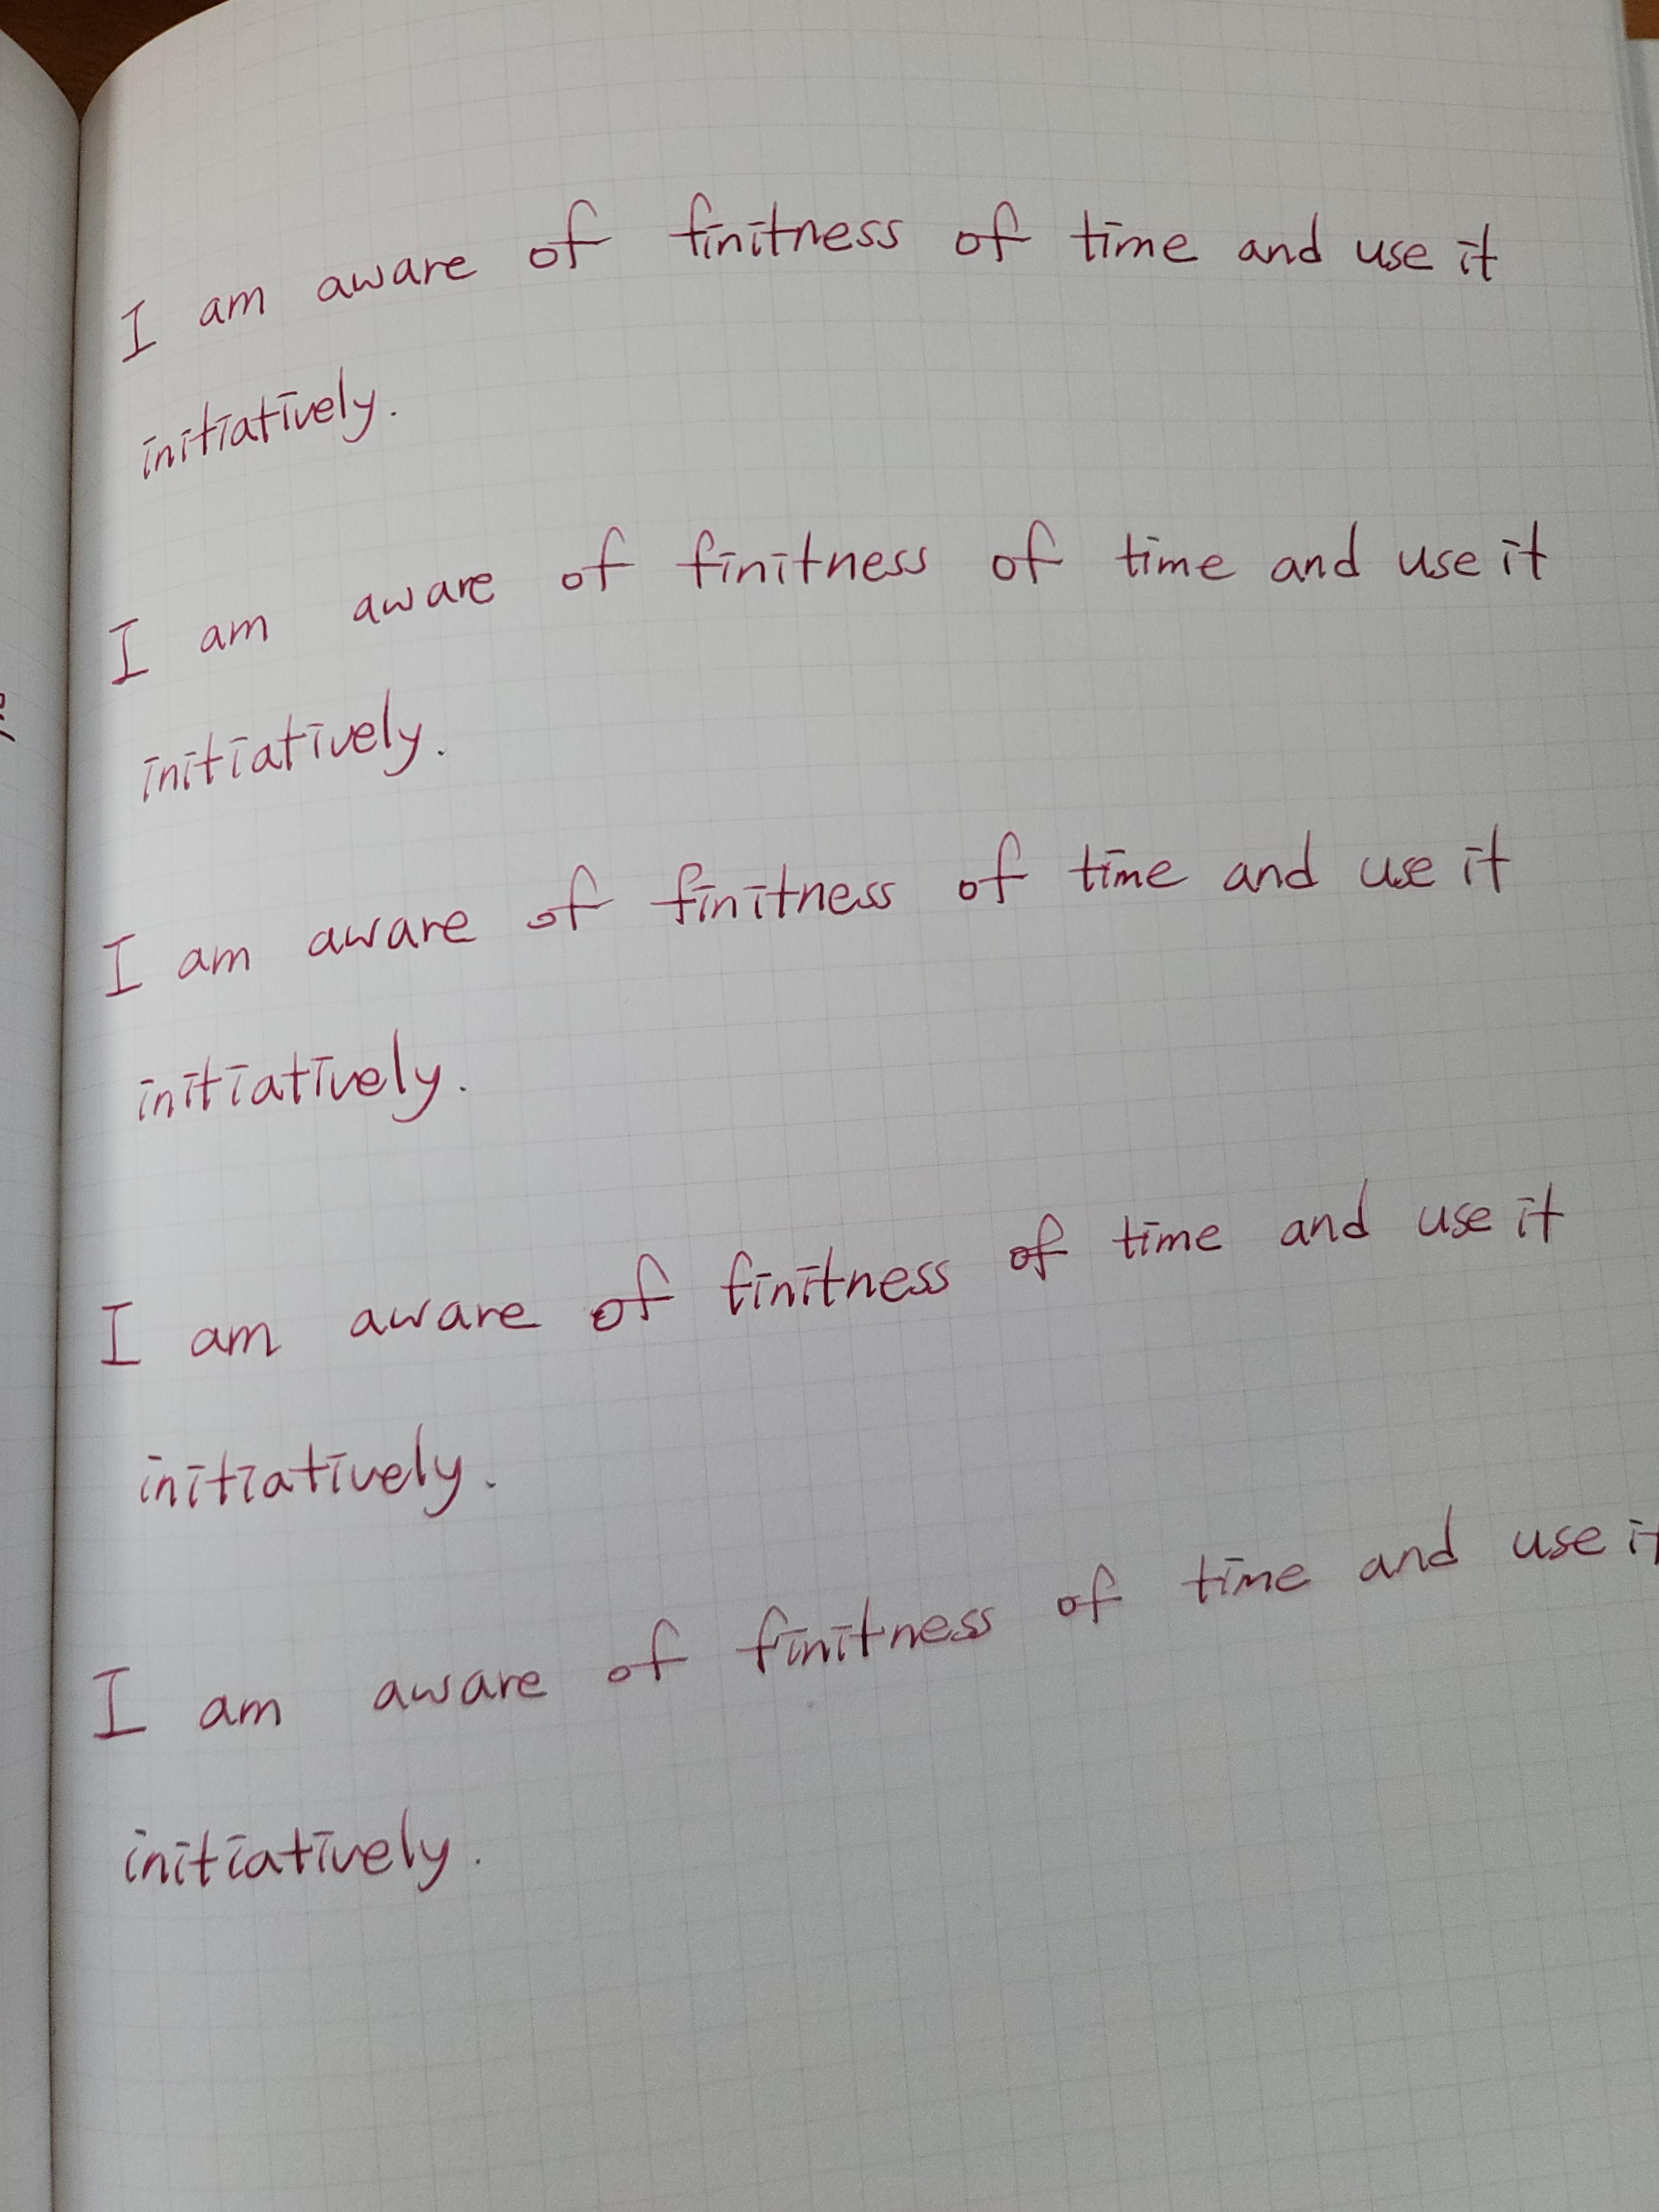 I am aware of finitness of time and use it
initiatively.
I am aware of finitness of time and use it
initiatively.
I am aware of finitness of time and use it
initiatively.
I am aware of finitness of time and use it
initiatively.
I am aware of finitness of time and use it
initiatively.